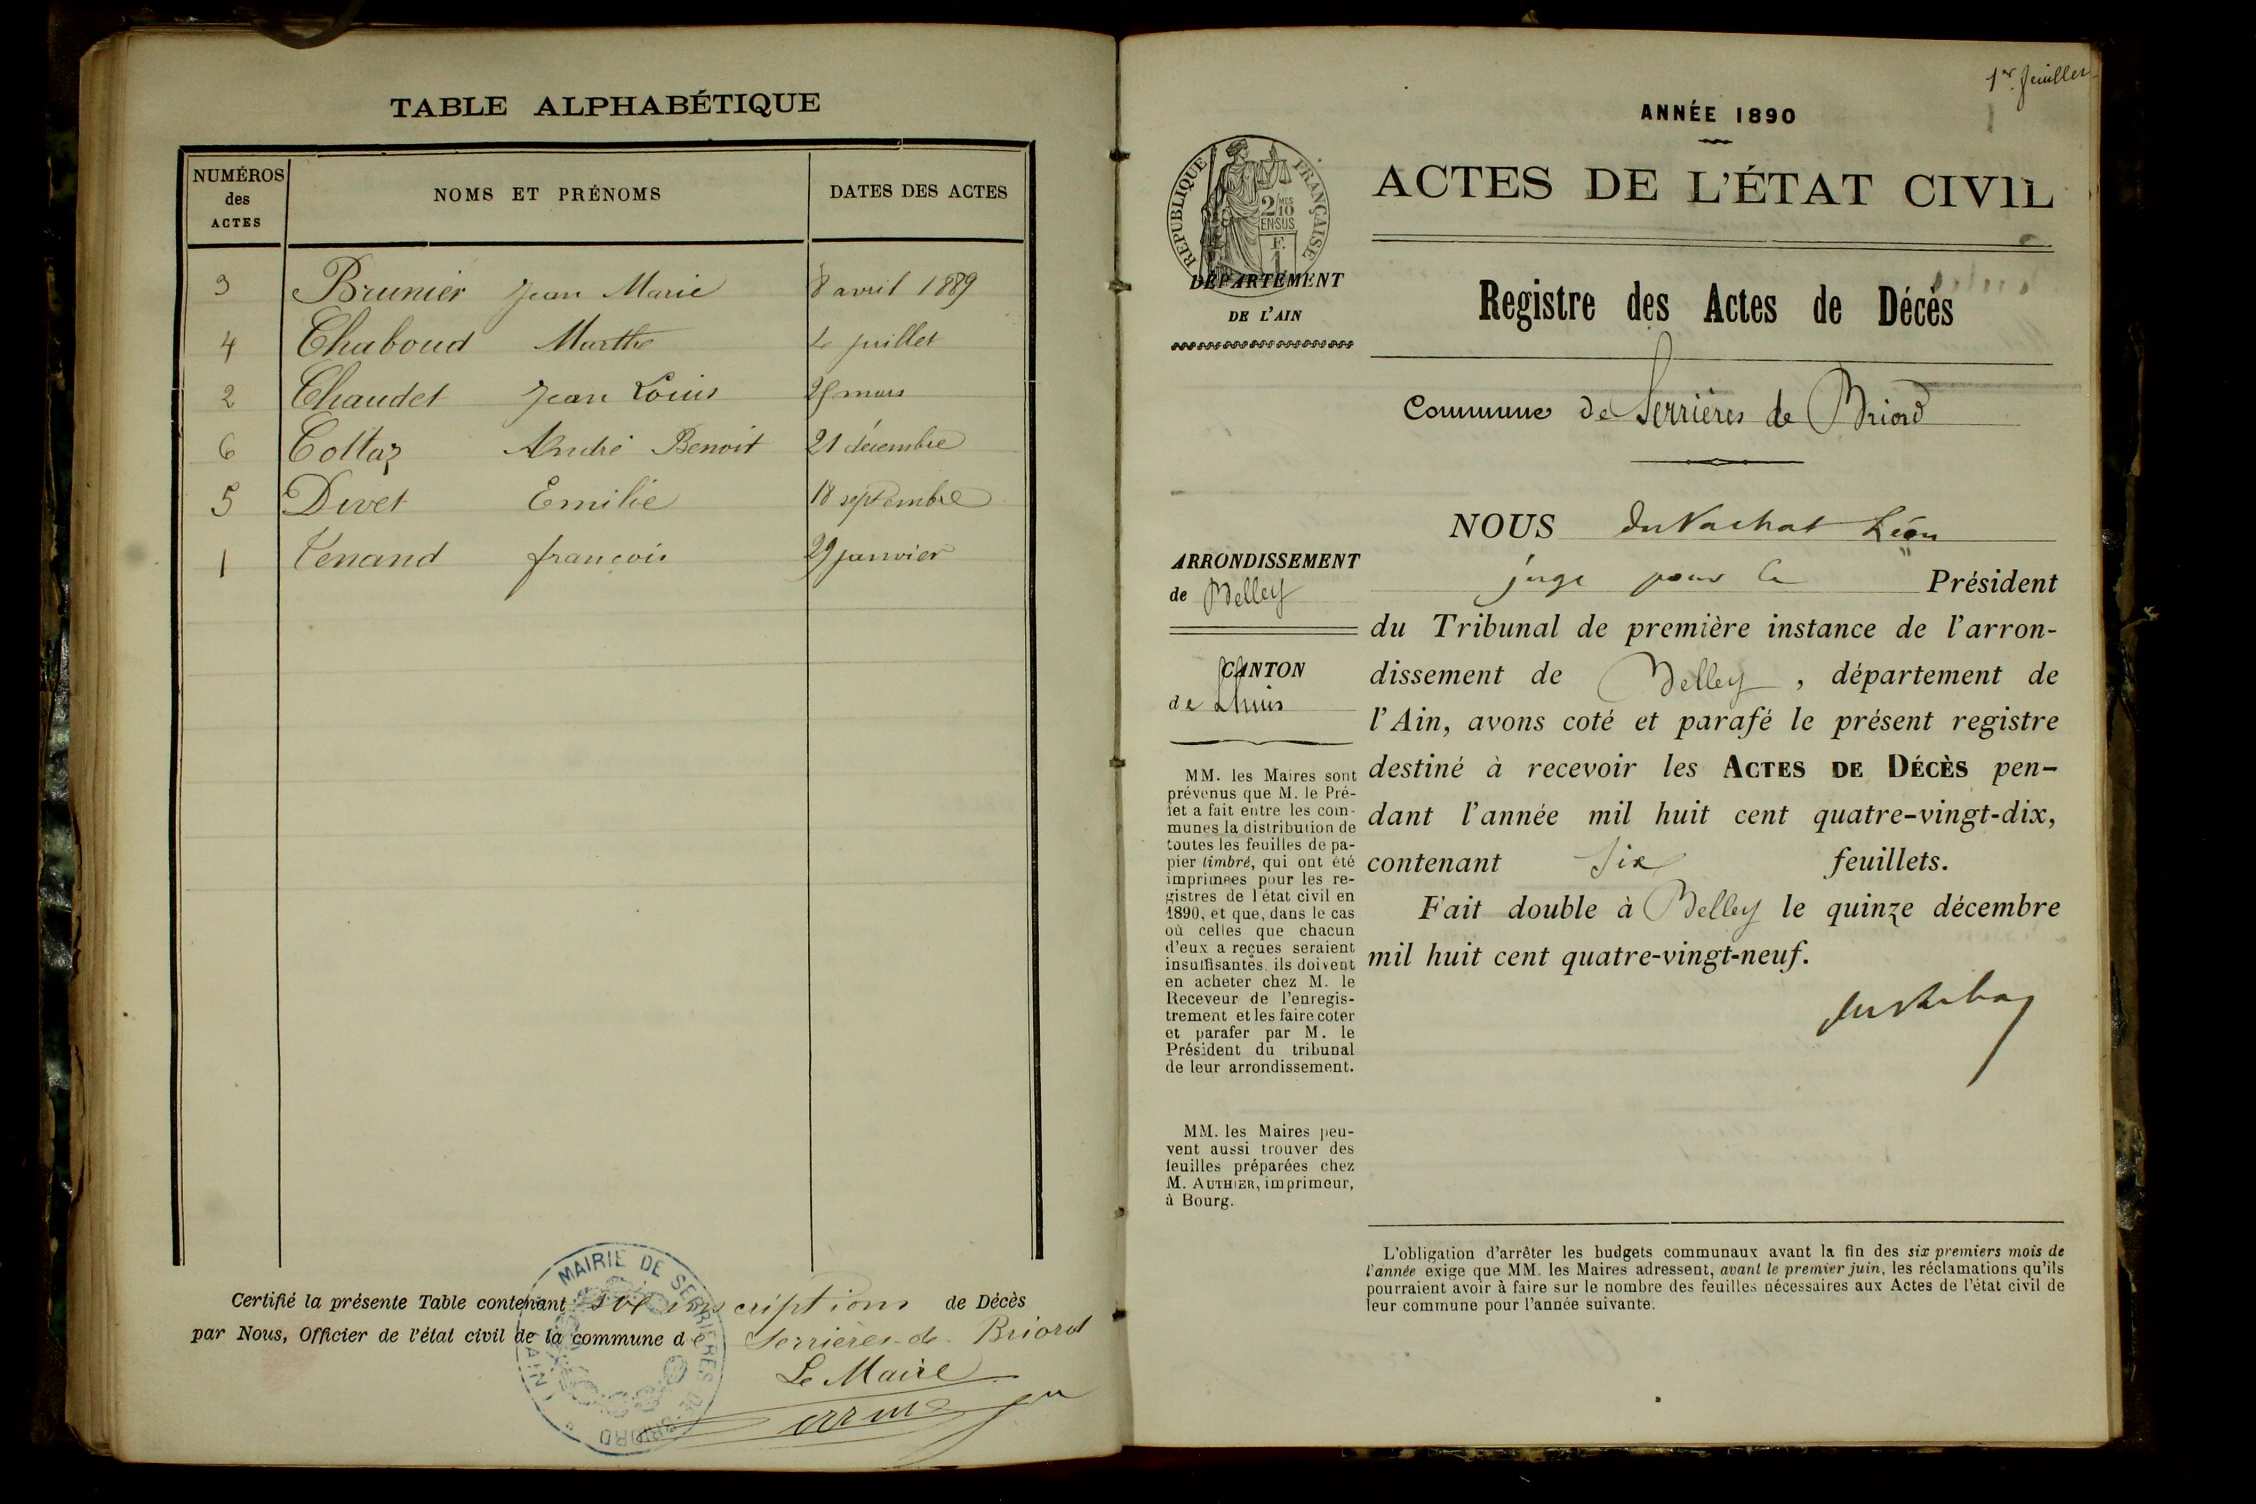 TABLE ALPHABÉTIQUE
NUMÉROS des ACTES
NOMS ET PRÉNOMS
DATES DES ACTES
3 Brunier Jean Marie 8 avril 1889
4 Chaboud Marthe juillet
2 Chaudet Jean Louis mars
6 Cottaz André Benoit 21 décembre
5 Divet Emilie 18 septembre
1 Venand françois 29 janvier
Certifié la présente Table contenant six inscriptions de Décès
par Nous, Officier de l'état civil de la commune de Serrières-de-Briord
Le Maire
MAIRIE DE SERRIERES DE BRIORD
(AIN)
1er feuillet
ANNÉE 1890
ACTES DE L'ÉTAT CIVIL
RÉPUBLIQUE FRANÇAISE
2/10 MES
EN SUS
F.
1
DÉPARTEMENT
DE L'AIN
Registre des Actes de Décès
Commune de Serrières de Briord
ARRONDISSEMENT
de Belley
CANTON
de Lhuis
NOUS Du Vachat Léon
juge pour le Président
du Tribunal de première instance de l'arron-
dissement de Belley, département de
l'Ain, avons coté et parafé le présent registre
destiné à recevoir les ACTES DE DÉCÈS pen-
dant l'année mil huit cent quatre-vingt-dix,
contenant Six feuillets.
Fait double à Belley le quinze décembre
mil huit cent quatre-vingt-neuf.
MM. les Maires sont
prévenus que M. le Pré-
fet a fait entre les com-
munes la distribution de
toutes les feuilles de pa-
pier timbré, qui ont été
imprimées pour les re-
gistres de l'état civil en
1890, et que, dans le cas
où celles que chacun
d'eux a reçues seraient
insuffisantes, ils doivent
en acheter chez M. le
Receveur de l'enregis-
trement et les faire coter
et parafer par M. le
Président du tribunal
de leur arrondissement.
MM. les Maires peu-
vent aussi trouver des
feuilles préparées chez
M. AUTHIER, imprimeur,
à Bourg.
L'obligation d'arrêter les budgets communaux avant la fin des six premiers mois de
l'année exige que MM. les Maires adressent, avant le premier juin, les réclamations qu'ils
pourraient avoir à faire sur le nombre des feuilles nécessaires aux Actes de l'état civil de
leur commune pour l'année suivante.